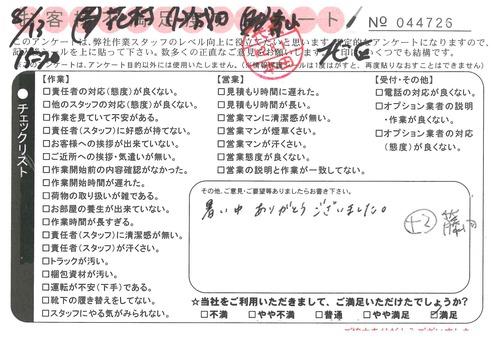 お客 足 ート
№ 044726
8/13
15:20
このアンケートは、弊社作業スタッフのレベル向上に役立
アンケートになりますので、
のアンケートは、アンケート目的以外には使用いたしません。
北区
チェックリスト
【作業】
□責任者の対応(態度)が良くない。
□他のスタッフの対応(態度)が良くない。
□作業を見ていて不安がある。
□責任者(スタッフ)に好感が持てない。
□お客様への挨拶が出来ていない。
□ご近所への挨拶・気遣いが無い。
□作業開始前の内容確認がなかった。
□作業開始時間が遅れた。
□荷物の取り扱いが雑である。
□お部屋の養生が出来ていない。
□作業時間が長すぎる。
□責任者(スタッフ)に清潔感が無い。
□責任者(スタッフ)が汗くさい。
□トラックが汚い。
□梱包資材が汚い。
□運転が不安(下手)である。
□靴下の履き替えをしてない。
□スタッフにやる気がみられない。
【営業】
□見積もり時間に遅れた。
□見積もり時間が長い。
□営業マンに清潔感が無い。
□営業マンが煙草くさい。
□営業マンが汗くさい。
□営業態度が良くない。
□営業の説明と作業が一致してない。
【受付・その他】
□電話の対応が良くない。
□オプション業者の説明
・作業が良くない。
□オプション業者の対応
(態度)が良くない。
その他、ご意見・ご要望等ありましたらお書き下さい。
暑い中 ありがとうございました。
☆当社をご利用いただきまして、ご満足いただけでしょうか?
□不満 □やや不満 □普通 □やや満足 ☑満足